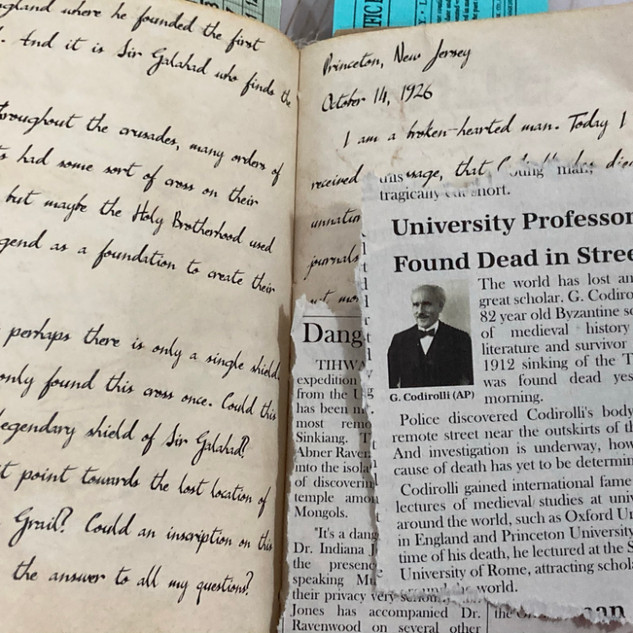 England where he founded the first
And it is Sir Galahad who finds the
throughout the crusades, many orders of
had some sort of cross on their
but maybe the Holy Brotherhood used
legend as a foundation to create their
perhaps there is only a single shield.
only found this cross once. Could this
legendary shield of Sir Galahad?
point towards the lost location of
Grail? Could an inscription on this
the answer to all my questions?
Princeton, New Jersey
October 14, 1926
I am a broken-hearted man. Today I
received
journals
tragically cut short.
University Professor
Found Dead in Stree
The world has lost an
great scholar. G. Codiro
82 year old Byzantine sc
of medieval history
literature and survivor
1912 sinking of the T
was found dead yes
morning.
G. Codirolli (AP)
Police discovered Codirolli's body
remote street near the outskirts of th
And investigation is underway, how
cause of death has yet to be determin
Codirolli gained international fame
lectures of medieval studies at univ
around the world, such as Oxford Un
in England and Princeton University
time of his death, he lectured at the S
University of Rome, attracting schola
world.
Dang
TIHWA
expedition
from the U
has been
most rem
Sinkiang. T
Abner Raven
into the isola
of discoverin
temple amo
Mongols.
"It's a dang
Dr. Indiana J
the presenc
speaking Mu
their privacy very
Jones has accompanied Dr.
Ravenwood on several other